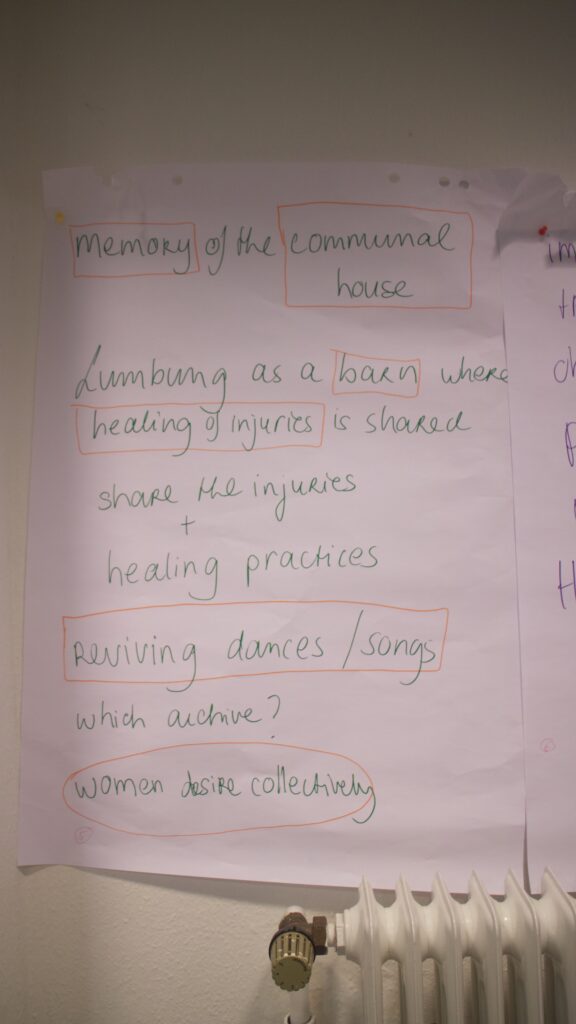 memory of the communal
house
Lumbung as a barn where
healing of injuries is shared
share the injuries
+
healing practices
Reviving dances / songs
which archive?
women desire collectively
im
tr
ch
H